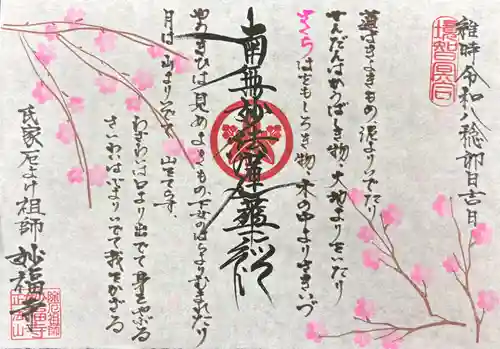 維時 令和八稔卯日吉日
境智冥合
蓮はきよきもの 泥よりいでたり
せんだんはかうばしき物 大地よりをいたり
さくらはをもしろき物 木の中よりさきいづ
南無妙法蓮華経
やうきひは見めよきもの 下女のはらよりむまれたり
月は山よりいでて 山をてらす
わざわいは口より出でて身をやぶる
さいわいは心よりいでて我をかざる
氏家厄よけ祖師 妙福寺
妙福寺